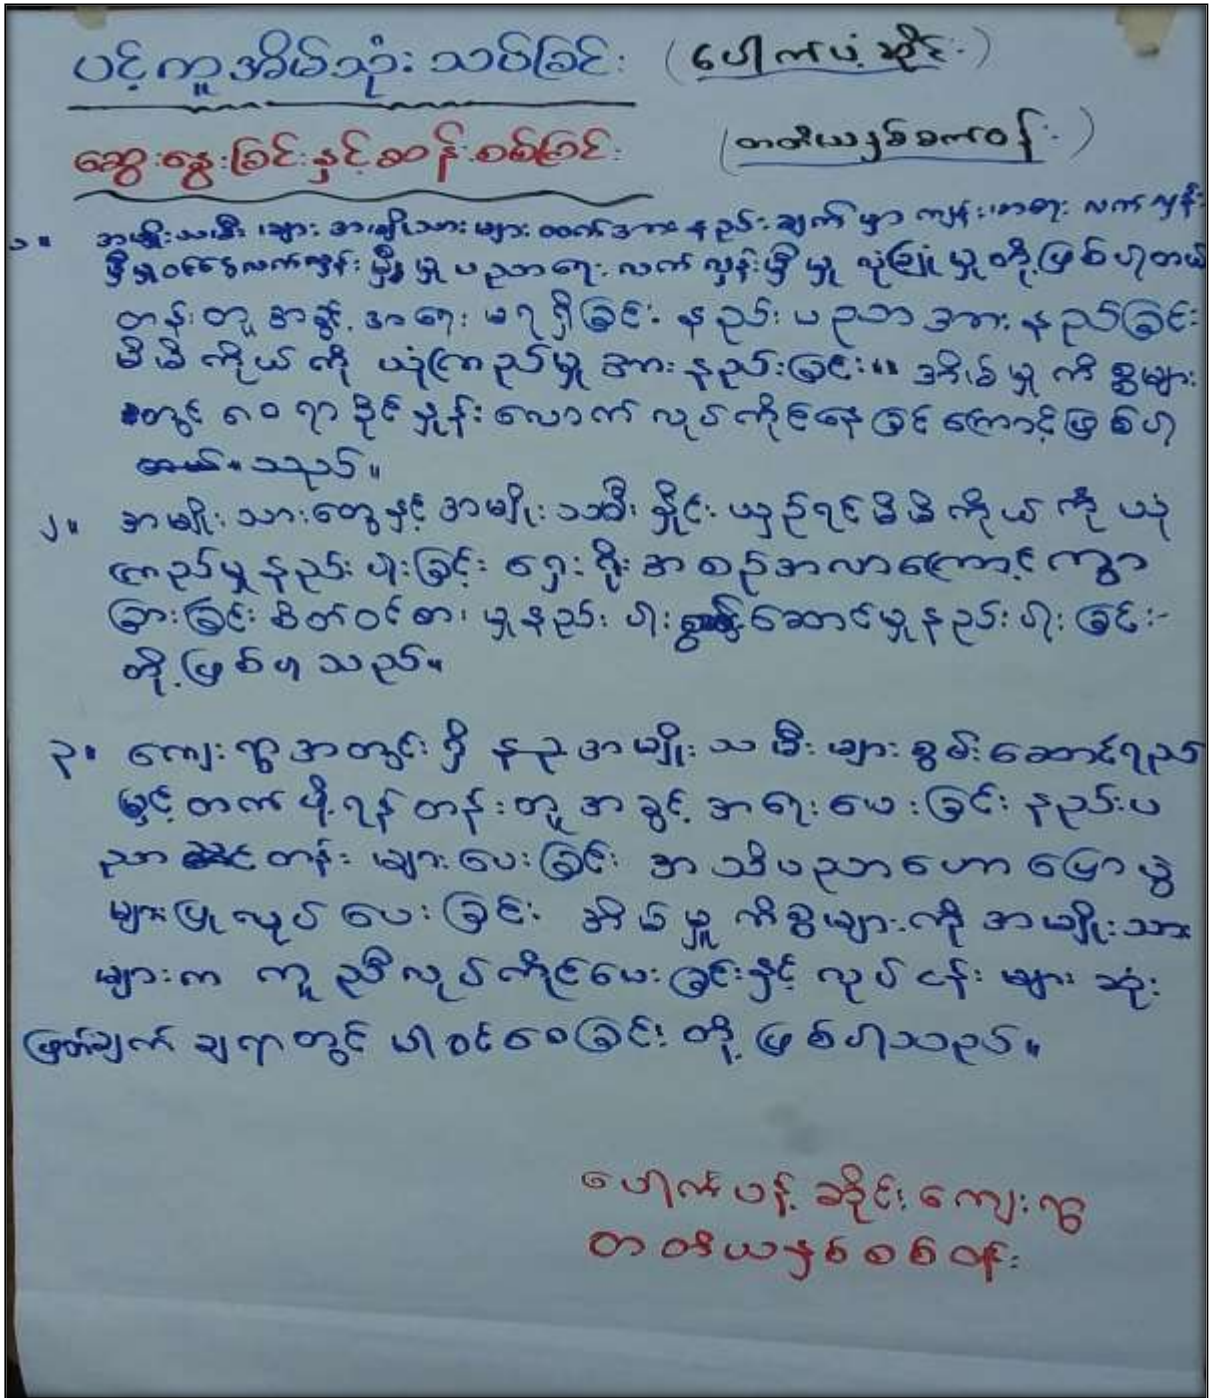 ပင့်ကူအိမ်သုံးသပ်ခြင်း (ပေါက်ပံ့ဆိုင်း)
ဆွေးနွေးခြင်းနှင့်ဆန်းစစ်ခြင်း (တတိယနှစ်စက်ဝန်း)
၁။ အမျိုးသမီးများ အမျိုးသားများထက်အားနည်းချက်မှာ ကျန်းမာရေး လက်လှမ်း
မှီမှုဝင်ငွေလက်လှမ်းမှီမှု ပညာရေးလက်လှမ်းမှီမှု လုံခြုံမှုတို့ဖြစ်ပါတယ်
တန်းတူအခွင့်အရေးမရရှိခြင်း နည်းပညာအားနည်ခြင်း
မိမိကိုယ်ကို ယုံကြည်မှုအားနည်းခြင်း။ အိမ်မှုကိစ္စများ
တွင် ၈၀ ရာခိုင်နှုန်းလောက် လုပ်ကိုင်နေခြင်ကြောင့်ဖြစ်ပါ
သည်။
၂။ အမျိုးသားတွေနှင့် အမျိုးသမီးနှိုင်းယှဉ်ရင်မိမိကိုယ်ကိုယုံ
ကြည်မှုနည်းပါးခြင်း ရှေးရိုးအစဉ်အလာကြောင့်ကွာ
ခြားခြင်းစိတ်ဝင်စားမှုနည်းပါး ဆောင်မှုနည်းပါးခြင်း-
တို့ဖြစ်ပါသည်။
၃။ ကျေးရွာအတွင်းရှိ အမျိုးသမီးများစွမ်းဆောင်ရည်
မြှင့်တက်ဖို့ရန်တန်းတူအခွင့်အရေးပေးခြင်းနည်းပ
ညာ တန်းများပေးခြင်း အသိပညာဟောပြောပွဲ
များပြုလုပ်ပေးခြင်း အိမ်မှုကိစ္စများကို အမျိုးသား
များက ကူညီလုပ်ကိုင်ပေးခြင်းနှင့် လုပ်ငန်းများဆုံး
ဖြတ်ချက်ချရာတွင် ပါဝင်စေခြင်းတို့ဖြစ်ပါသည်။
ပေါက်ပန့်ဆိုင်းကျေးရွာ
တတိယနှစ်စစ်ဝန်း